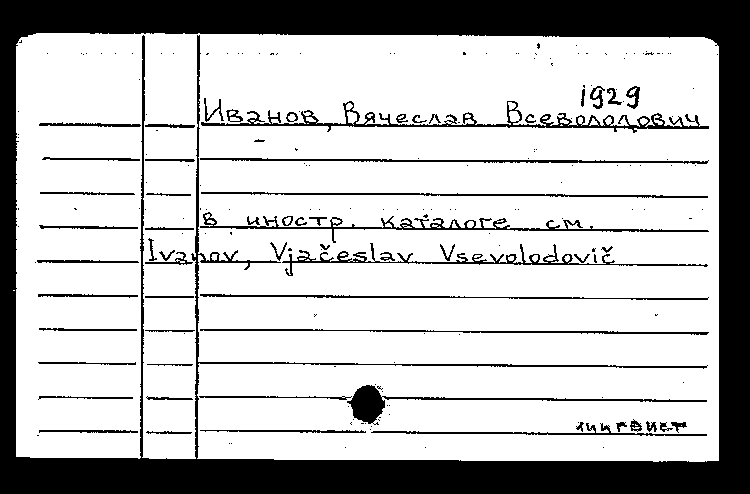 1929
Иванов, Вячеслав Всеволодович
в иностр. каталоге см.
Ivanov, Vjačeslav Vsevolodovič
лингвист